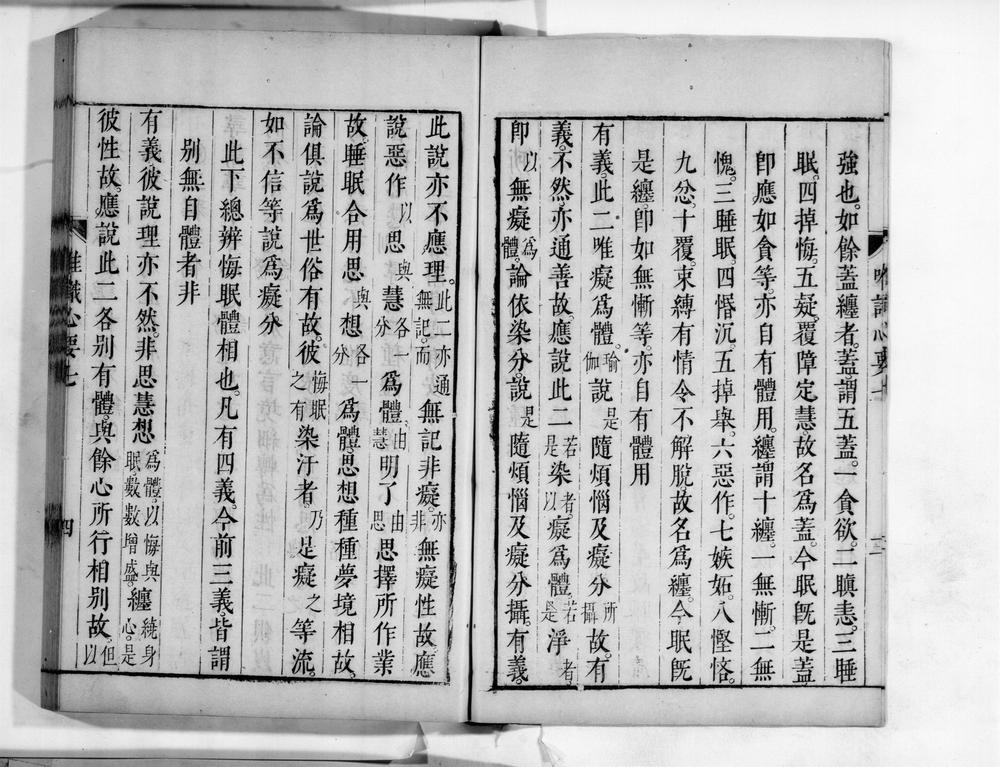 唯識心要七　三
強也。如餘蓋纏者。蓋謂五蓋。一貪欲。二瞋恚。三睡
眠。四掉悔。五疑。覆障定慧。故名爲蓋。今眠旣是蓋。
卽應如貪等。亦自有體用。纏謂十纏。一無慚。二無
愧。三睡眠。四惛沉。五掉舉。六惡作。七嫉妬。八慳悋。
九忿。十覆。束縛有情令不解脫故名爲纏。今眠旣
是纏卽如無慚等。亦自有體用
有義。此二唯癡爲體。瑜伽說是隨煩惱及癡分所攝故。有
義。不然。亦通善故。應說此二若是染者。以癡爲體。若是淨者。
卽以無癡爲體。論依染分。說是隨煩惱及癡分攝。有義。
此說亦不應理。此二亦通無記。而無記非癡。亦非無癡性故。應
說惡作以思與慧各一分爲體。由慧明了由思思擇所作業
故。睡眠合用思與想各一分爲體。思想種種夢境相故。
論俱說爲世俗有故。彼悔眠之有染汙者。乃是癡之等流。
如不信等說爲癡分
此下總辨悔眠體相也。凡有四義。今前三義。皆謂
別無自體者非
有義。彼說理亦不然。非思慧想爲體。以悔與眠。數數增盛。纏繞身心。是
彼性故。應說此二各別有體。與餘心所行相別故。但以
唯識心要七　四